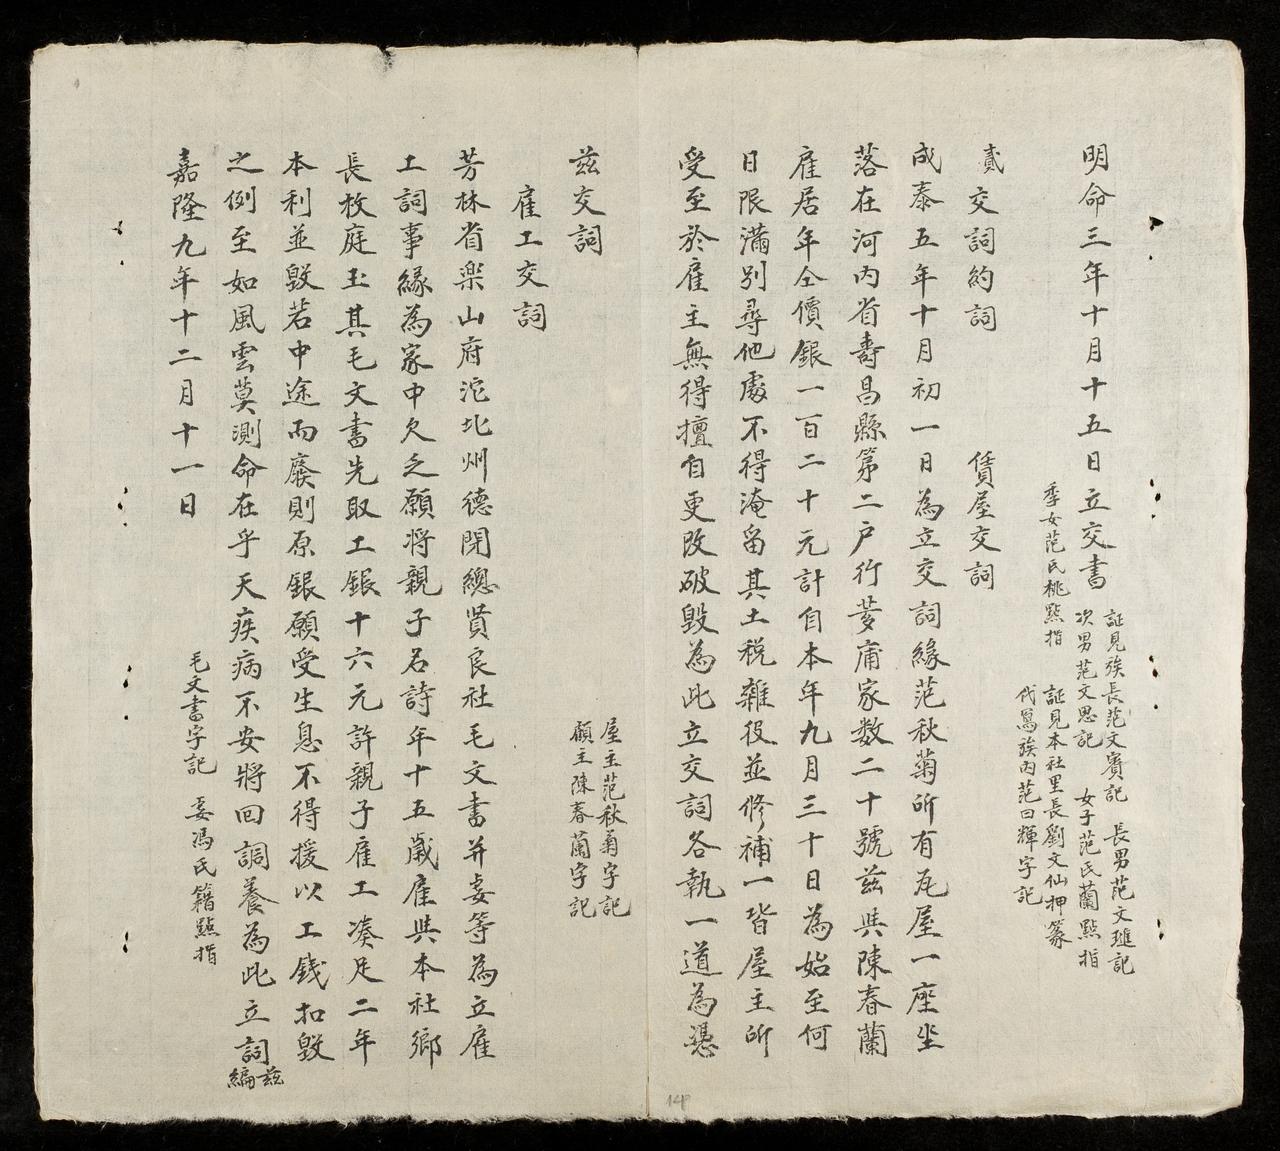 明命三年十月十五日立交書
証見族長范文賓記　長男范文璡記
次男范文思記　女子范氏蘭點指
季女范氏桃點指　証見本社里長劉文仙押篆
代寫族丙范曰輝字記
貳交詞約詞　賃屋交詞
成泰五年十月初一日為立交詞緣范秋菊所有瓦屋一座坐
落在河內省壽昌縣第二戶行䓤庯家数二十號兹與陳春蘭
雇居年仝價銀一百二十元計自本年九月三十日為始至何
日限滿別尋他處不得淹留其土税雜役並修補一皆屋主所
受至於雇主無得擅自更改破毀為此立交詞各執一道為憑
兹交詞
屋主范秋菊字記
顧主陳春蘭字記
雇工交詞
芳林省楽山府沱北州德閉總賢良社毛文書并妾等為立雇
工詞事緣為家中欠乏願将親子名詩年十五歲雇與本社鄉
長枚庭玉其毛文書先取工銀十六元許親子雇工凑足二年
本利並毀若中途而廢則原銀願受生息不得援以工錢扣毀
之例至如風雲莫測命在乎天疾病不安將回調養為此立詞
兹編
嘉隆九年十二月十一日
毛文書字記　妾馮氏籍點指
14